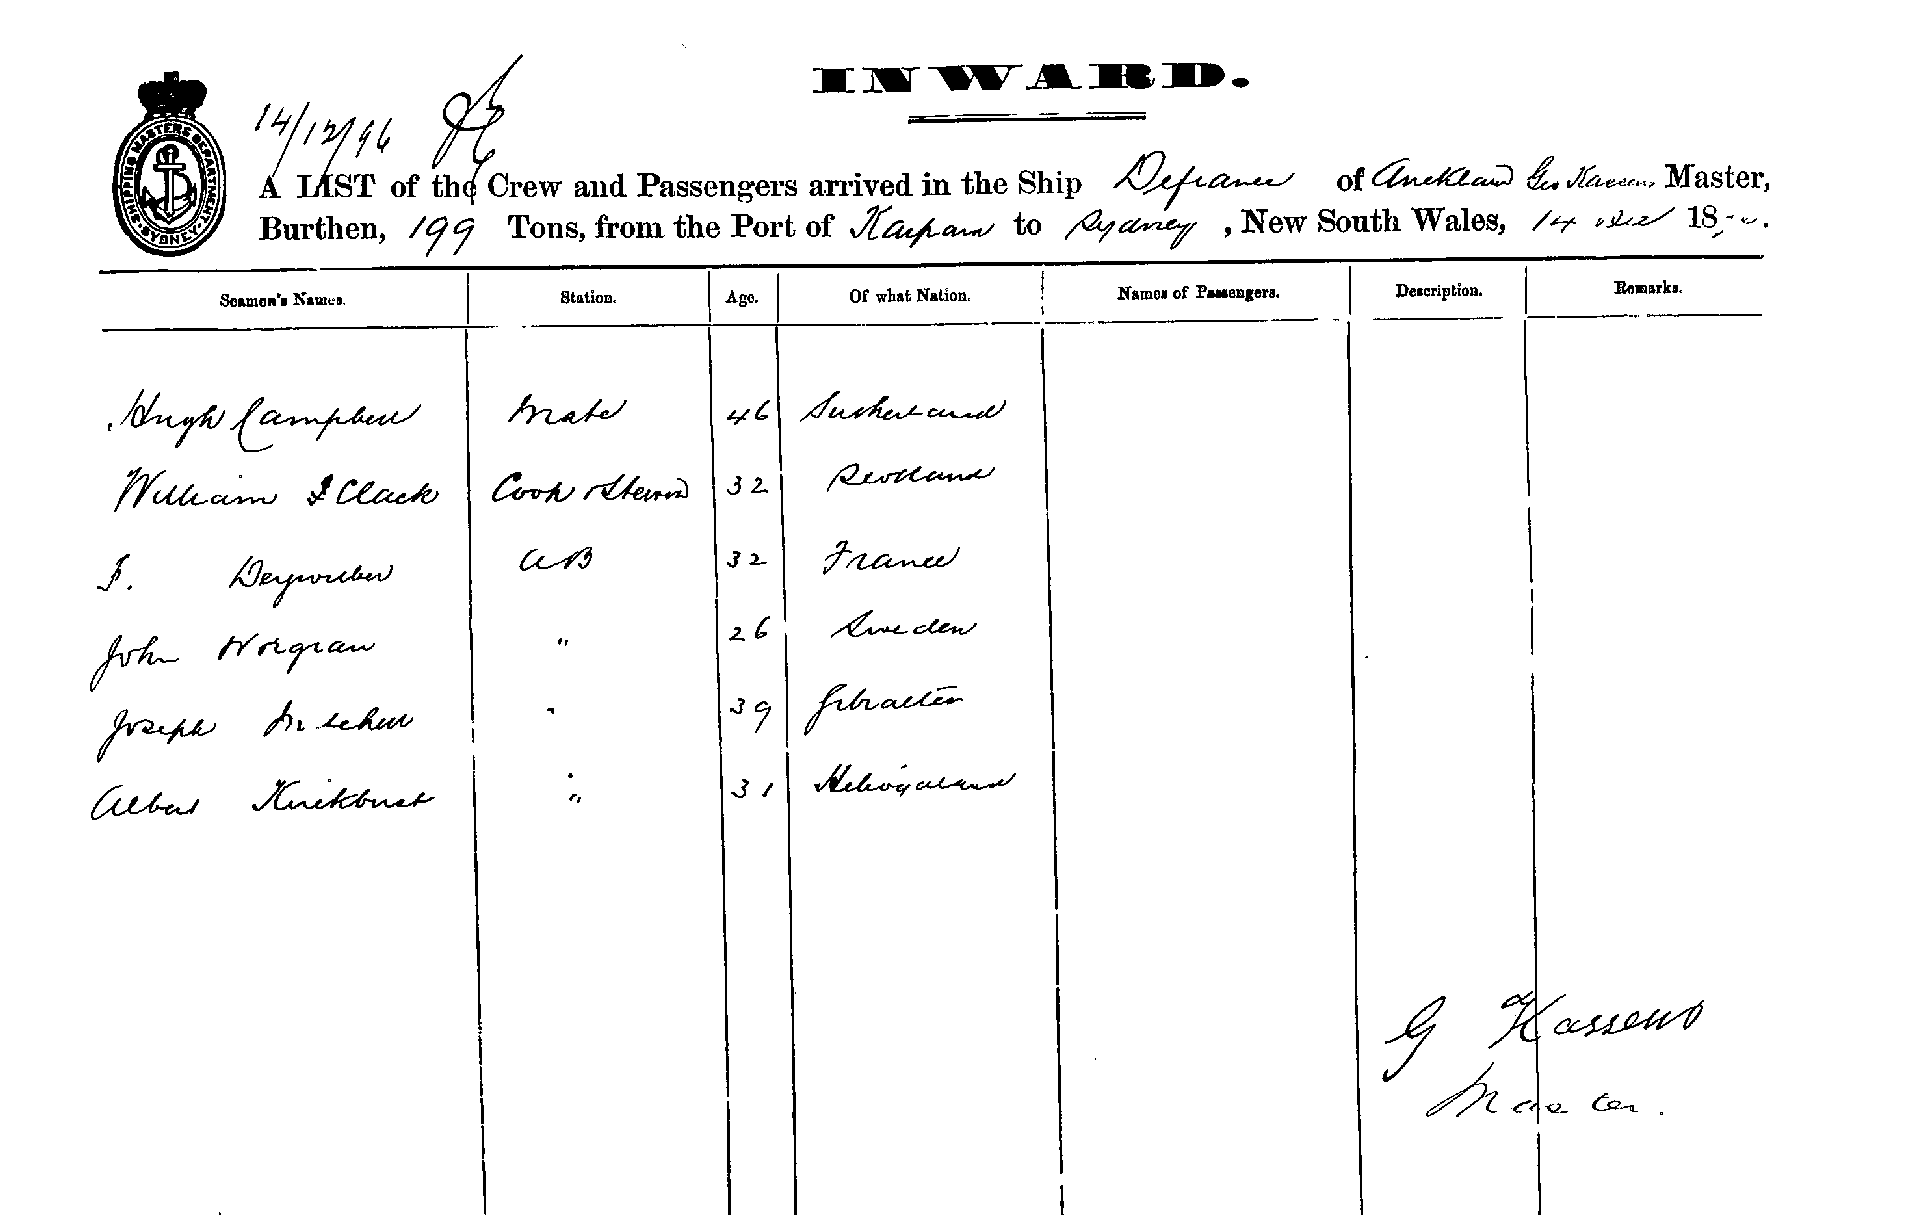 INWARD.
14/12/96
SHIPPING MASTERS DEPARTMENT · SYDNEY ·
A LIST of the Crew and Passengers arrived in the Ship Defiance of Auckland Geo Kassens Master,
Burthen, 199 Tons, from the Port of to Sydney, New South Wales, 14 Dec 18
Seamen's Names. Station. Age. Of what Nation. Names of Passengers. Description. Remarks.
Hugh Campbell Mate 46
William Clack Cook & Steward 32 Scotland
AB 32 France
John Norgran " 26 Sweden
Joseph Mitchell " 39 Gibralter
Albert " 31 Heligoland
G Kassens
Master.